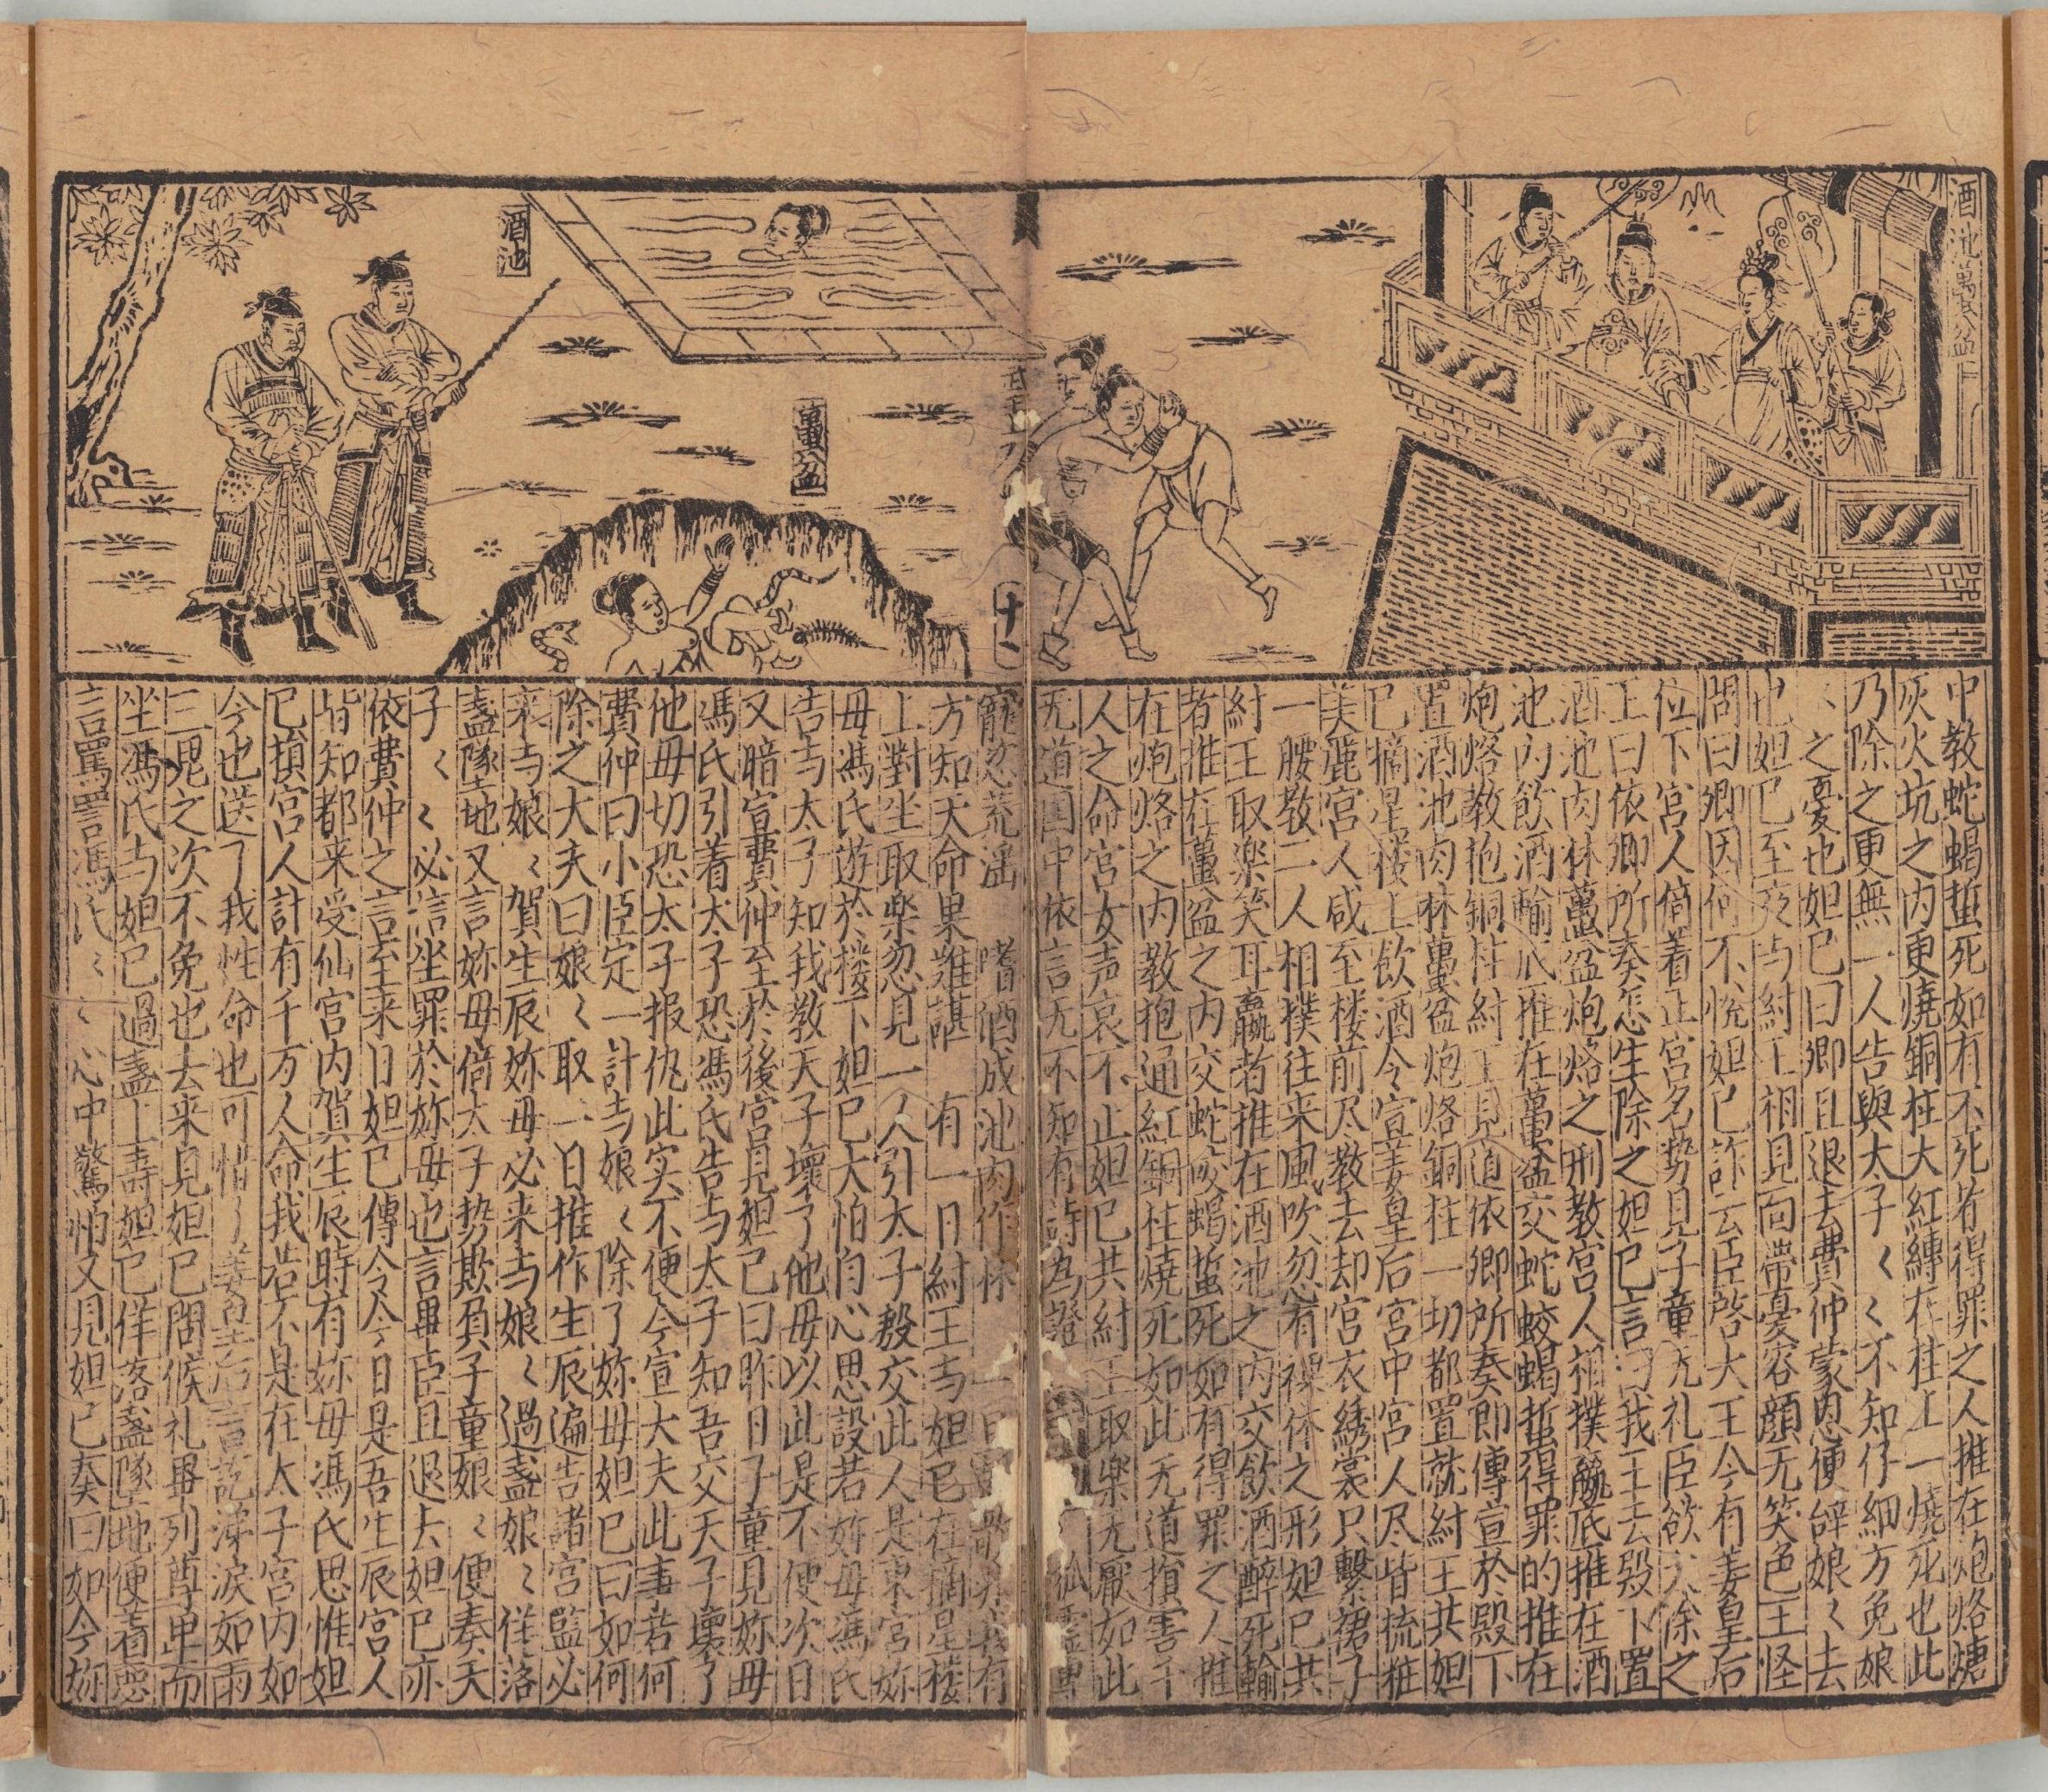 酒池蠆盆
酒池
蠆盆
中教蛇蝎蜇死如有不死者得罪之人推在炮烙煻
灰火坑之内更燒銅柱大紅縳在柱上一燒死也此
乃除之更無一人告與太子〻〻不知仔細方免娘
之憂也妲己曰卿且退去費仲蒙恩便辝娘〻去
也妲己至夜与紂王相見面帶憂容顔无笑色王怪
問曰卿因何不悅妲己詐云臣啓大王今有姜皇后
位下宮人倚着正宮名势見子童无礼臣欲除之
王曰依卿所奏怎生除之妲己言曰我王去殿下置
酒池肉林蠆盆炮烙之刑教宮人相撲觽底推在酒
池内飲酒輸底推在蠆盆交蛇蛟蝎蜇得罪的推在
炮烙教抱銅柱紂王見道依卿所奏即傳宣於殿下
置酒池肉林蠆盆炮烙銅柱一切都置就紂王共妲
己摘星楼上飲酒令宣姜皇后宮中宮人尽皆梳粧
美麗宮人咸至楼前尽教去却宮衣綉裳只繫裙子
一腰教二人相撲往来風吹忽有裸体之形妲己共
紂王取楽笑耳贏者推在酒池之内交飲酒醉死輸
者推在蠆盆之内交蛇咬蝎蜇死如有得罪之人推
在炮烙之内教抱通紅銅柱燒死如此无道損害千
人之命宮女声哀不止妲己共紂王取楽无厭如此
无道国中依言无不知有詩為證
寵忿荒滛　嗜酒成池肉作林
方知天命果難諶　有一日紂王与妲己在摘星楼
上對坐取楽忽見一人引太子殷交此人是東宮妳
母馮氏遊於楼下妲己大怕自心思設若妳母馮氏
告与太子知我教天子壞了他母以此是不便次日
又暗宣費仲至於後宮見妲己曰昨日子童見妳母
馮氏引着太子恐馮氏告与太子知吾交天子壞了
他母切恐太子报仇此实不便今宣大夫此事若何
費仲曰小臣定一計与娘〻除了妳母妲己曰如何
除之大夫曰娘〻取一日推作生辰遍告諸宮監必
来与娘〻賀生辰妳母必来与娘〻過盞娘〻佯落
盞墜地又言妳母倚太子势欺負子童娘〻便奏天
子〻〻必信坐罪於妳母也言畢臣且退去妲己亦
依費仲之言至来日妲己傳令今日是吾生辰宮人
皆知都来受仙宮内賀生辰時有妳母馮氏思惟妲
己損宮人計有千万人命我若不是在太子宮内如
今也送了我性命也可惜了姜皇后言訖涕淚如雨
三思之次不免也去来見妲己問候礼畢列尊卑而
坐馮氏与妲己過盞上壽妲己佯落盞墜地便着惡
言罵詈馮氏〻〻心中驚怕又見妲己奏曰如今妳